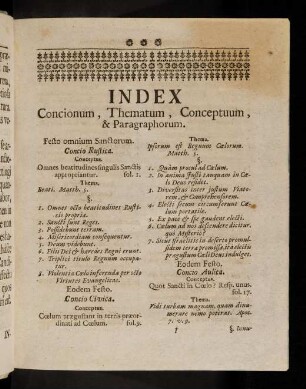 INDEX
Concionum, Thematum, Conceptuum,
& Paragraphorum.
Festo omnium Sanctorum.
Concio Rustica.
Conceptus.
Omnes beatitudines singulis Sanctis
appropriantur. fol. 1.
Thema.
Beati. Matth. 5.
§.
1. Omnes octo beatitudines Rusti-
cis propriæ.
2. Sancti sunt Reges.
3. Possidebunt terram.
4. Misericordiam consequentur.
5. Deum videbunt.
6. Filii Dei & hæredes Regni erunt.
7. Triplici titulo Regnum occupa-
tur.
8. Violentia Cœlo inferenda per octo
Virtutes Evangelicas.
Eodem Festo.
Concio Civica.
Conceptus.
Cœlum prægustant in terris præor-
dinati ad Cœlum. fol. 9.
Thema.
Ipsorum est Regnum Cœlorum.
Matth. 5.
§.
1. Quàm procul ad Cœlum.
2. In anima justi tanquam in Cœ-
lo Deus residet.
3. Diversitas inter justum Viato-
rem, & Comprehensorem.
4. Electi secum circumferunt Cœ-
lum portatile.
5. Ex pane & spe gaudent electi.
6. Cœlum ad nos descendere dicitur,
quo Mysterio?
7. Sicut Israëlitis in deserto promul-
sidem terra promissa, ita electis
prægustum Cœli Deus indulget.
Eodem Festo.
Concio Aulica.
Conceptus.
Quot Sancti in Cœlo? Resp. unus.
fol. 17.
Thema.
Vidi turbam magnam, quam dinu-
merare nemo poterat. Apoc.
7. v. 9.